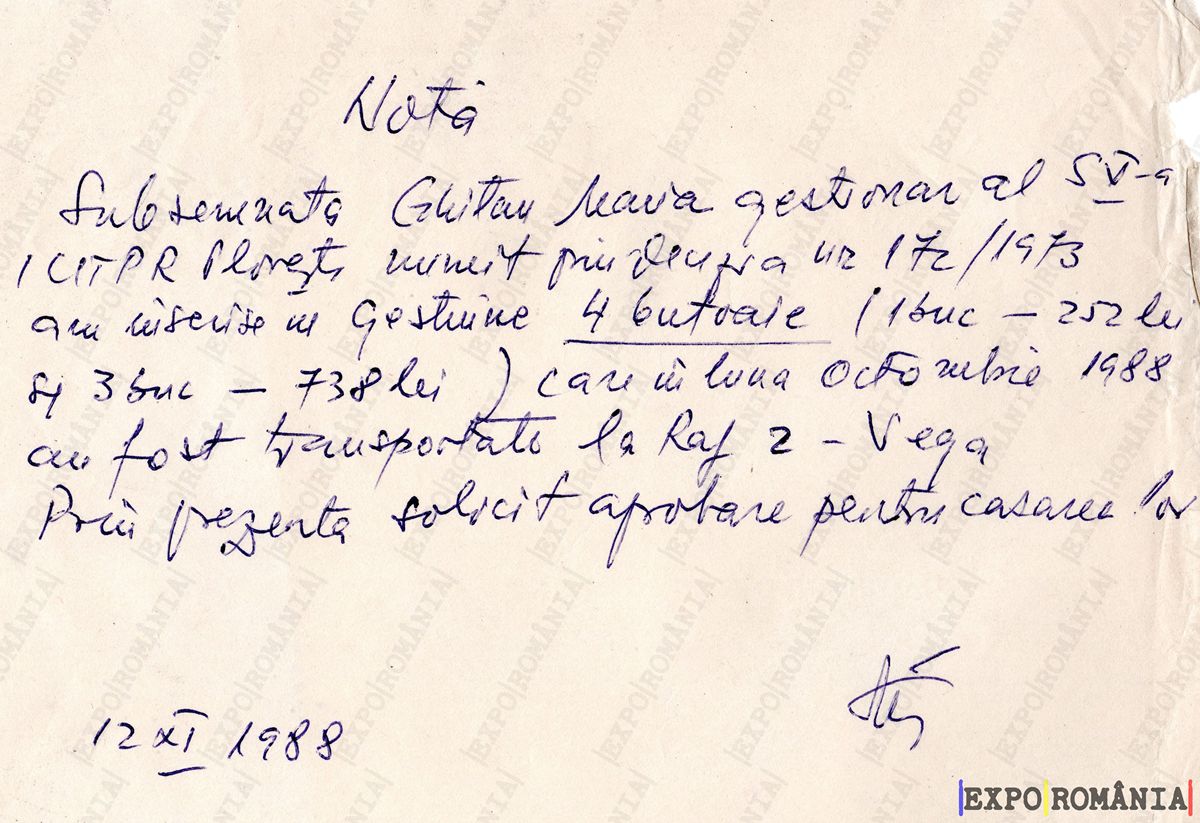 Notă
Subsemnata Ghitan Maria gestionar al S V-a
ICITPR Ploiești numit prin nr 172/1973
am înscrise în gestiune 4 butoaie (1 buc – 252 lei
și 3 buc – 738 lei) care în luna octombrie 1988
au fost transportate la Raf 2 – Vega
Prin prezenta solicit aprobare pentru casarea lor
12 XI 1988
|EXPO|ROMÂNIA|